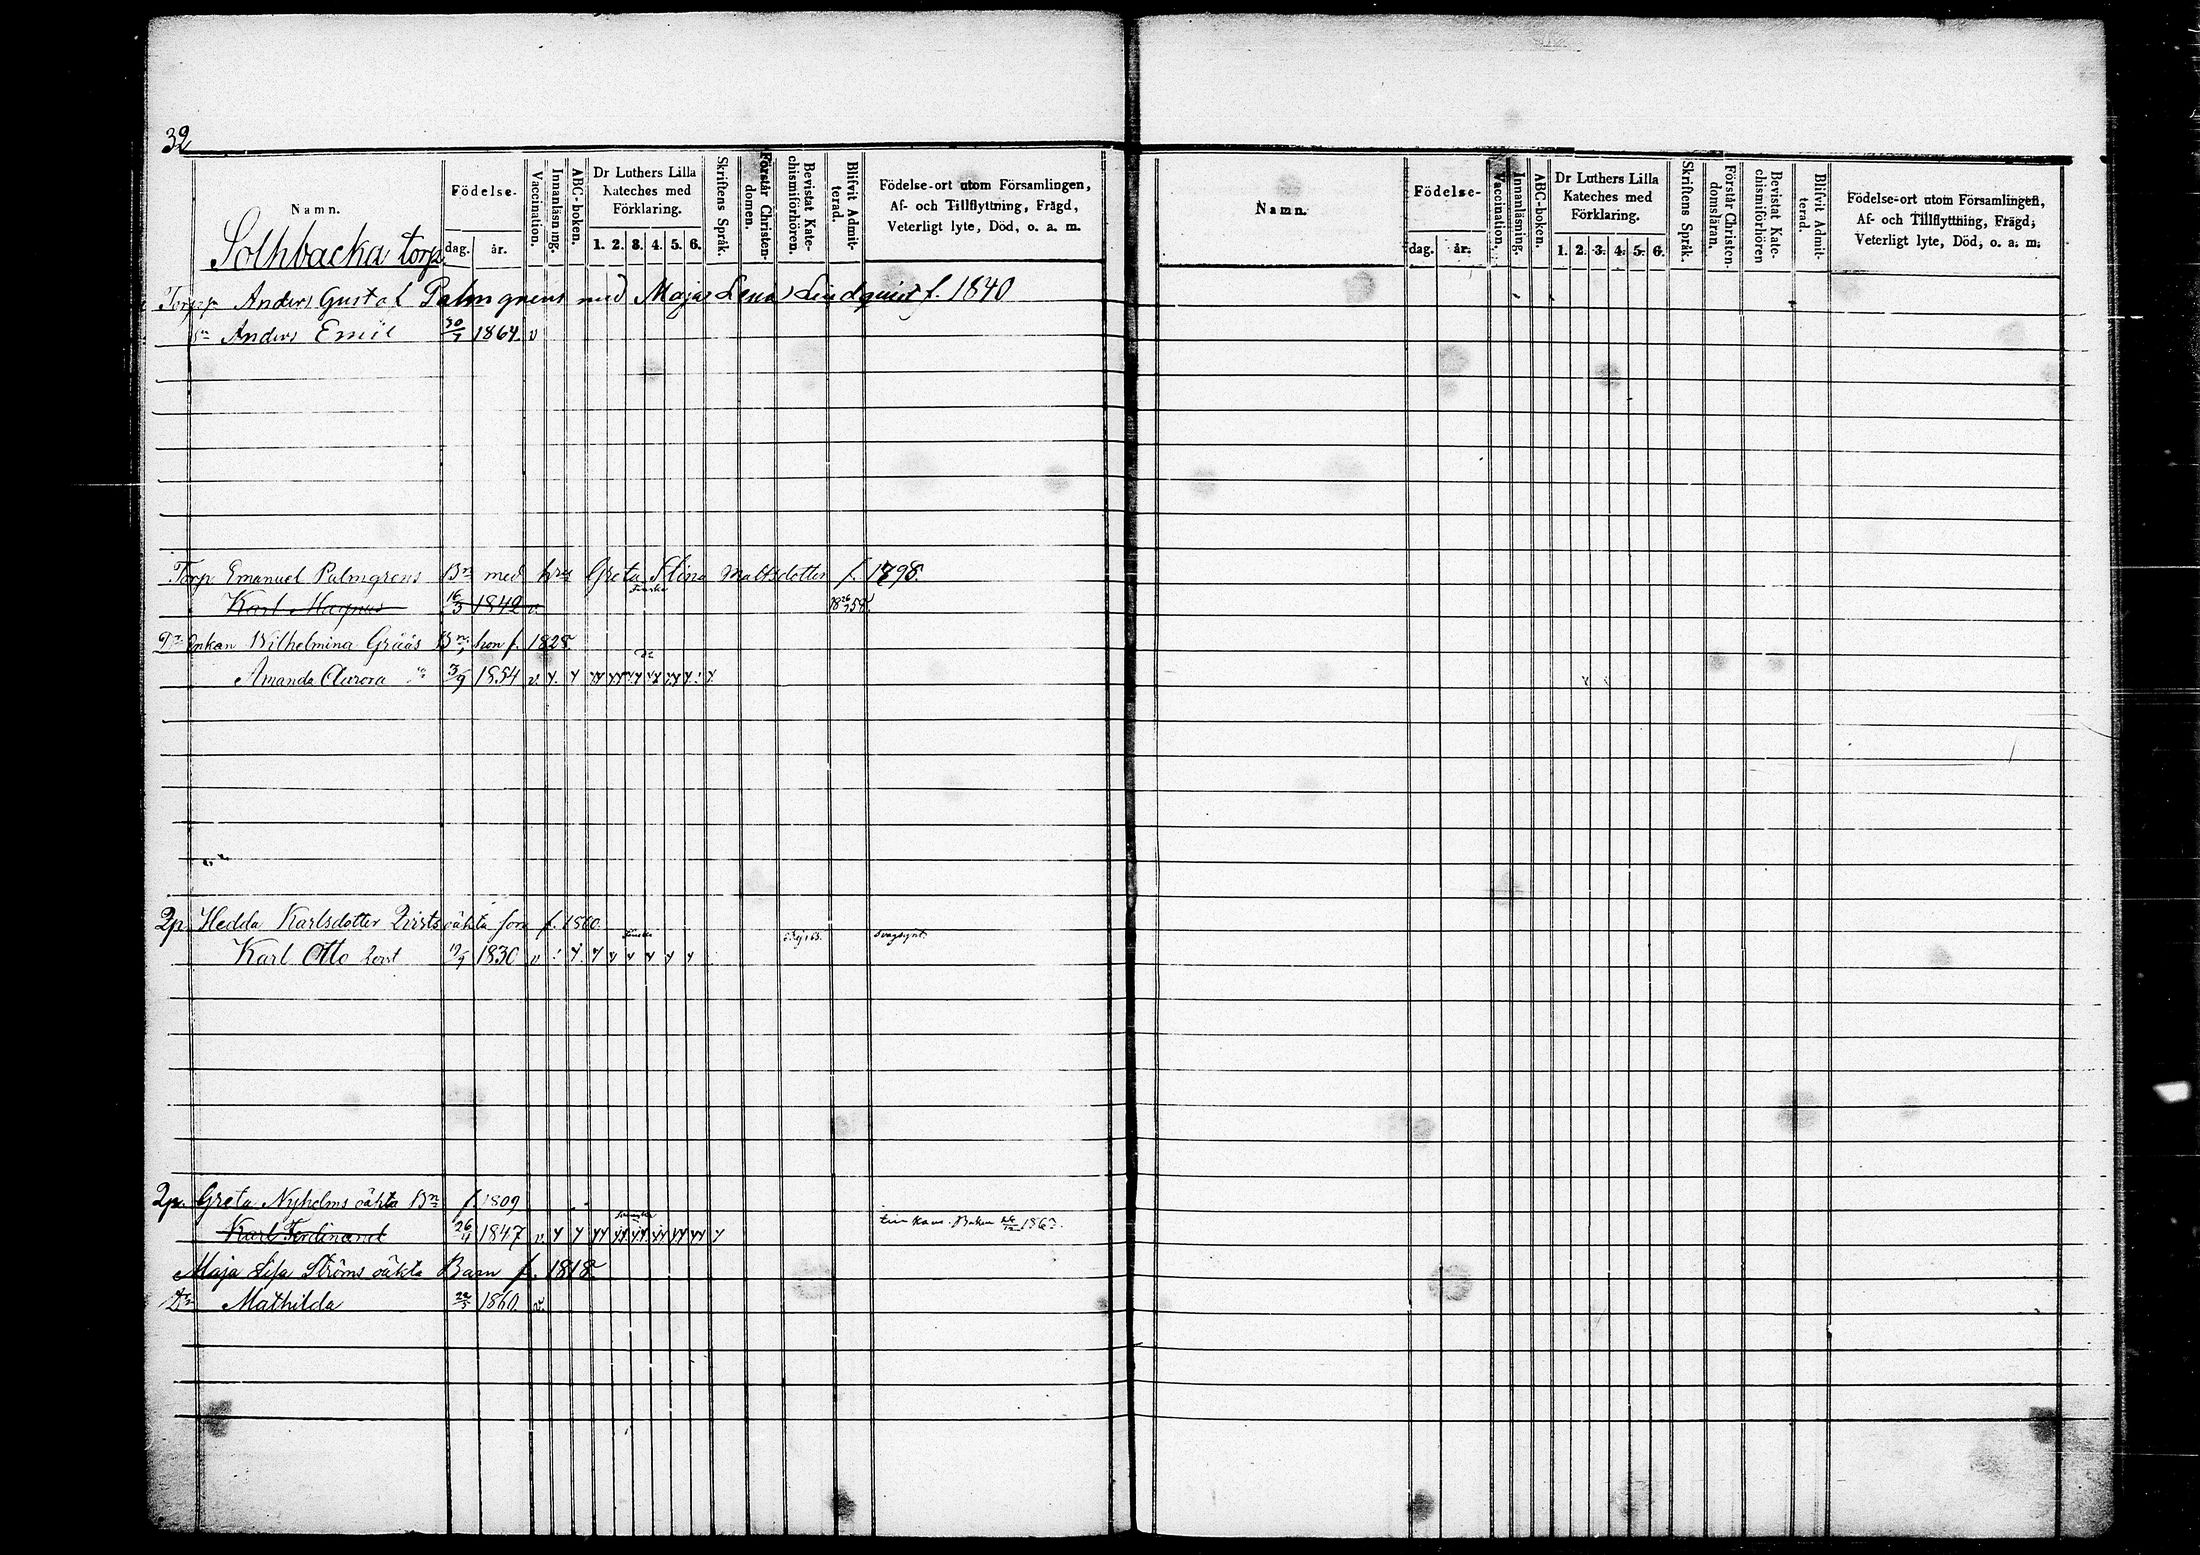 32
Namn.
Födelse-
dag. år.
Vaccination.
Innanläsning.
ABC-boken.
Dr Luthers Lilla
Kateches med
Förklaring.
1. 2. 3. 4. 5. 6.
Skriftens Språk.
Förstår Christen-
domen.
Bevistat Kate-
chismiförhören.
Blifvit Admit-
terad.
Födelse-ort utom Församlingen,
Af- och Tillflyttning, Frägd,
Veterligt lyte, Död, o. a. m.
Solhbacka torp
Torpp. Anders Gustaf Palmgrens med Maja Lena Lindquist f. 1840
Sn Anders Emil 30/7 1864. v
Torp Emanuel Palmgrens Bn med hru Greta Stina Mattsdotter f. 1798.
Karl Magnus 16/3 1842 v.
Enkan Wilhelmina Grääs Bn, hon f. 1828
Amanda Aurora 3/9 1854 v.
Hedda Karlsdotter Qvists oäkta f. 1800.
Karl Otto Qvist 19/9 1830 v svagsynt
Greta Nyholms oäkta Bn f. 1809
Karl Ferdinand 26/4 1847 v. 1863.
Maja Lisa Ströms oäkta Barn f. 1818
Dr Mathilda 22/5 1860. v.
Namn.
Födelse-
dag. år.
Vaccination.
Innanläsning.
ABC-boken.
Dr Luthers Lilla
Kateches med
Förklaring.
1. 2. 3. 4. 5. 6.
Skriftens Språk.
Förstår Christen-
domsläran.
Bevistat Kate-
chismiförhören
Blifvit Admit-
terad.
Födelse-ort utom Församlingen,
Af- och Tillflyttning, Frägd,
Veterligt lyte, Död, o. a. m.